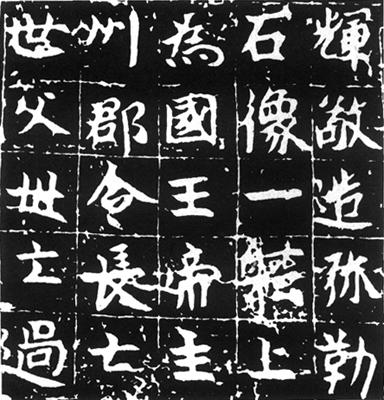 輝敬造弥勒
石像一軀上
為國王帝主
州郡令長七
世父母亡過